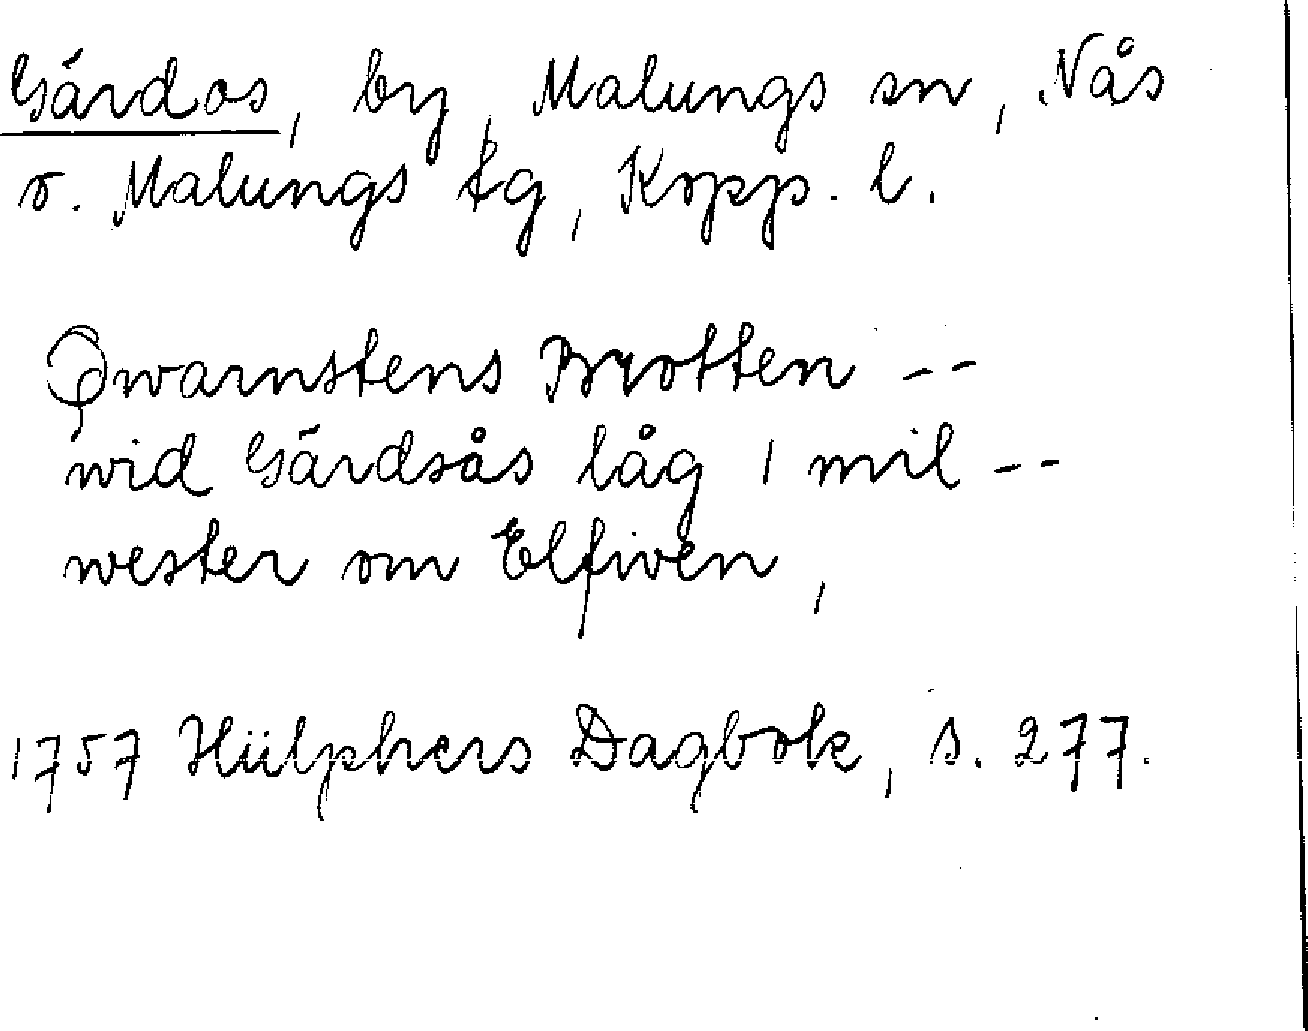 Gärdos, by, Malungs sn, Nås
o. Malungs tg, Kopp. l.
Qwarnstens Brotten --
wid Gärdsås låg 1 mil --
wester om Elfwen,
1757 Hülphers Dagbok, s. 277.